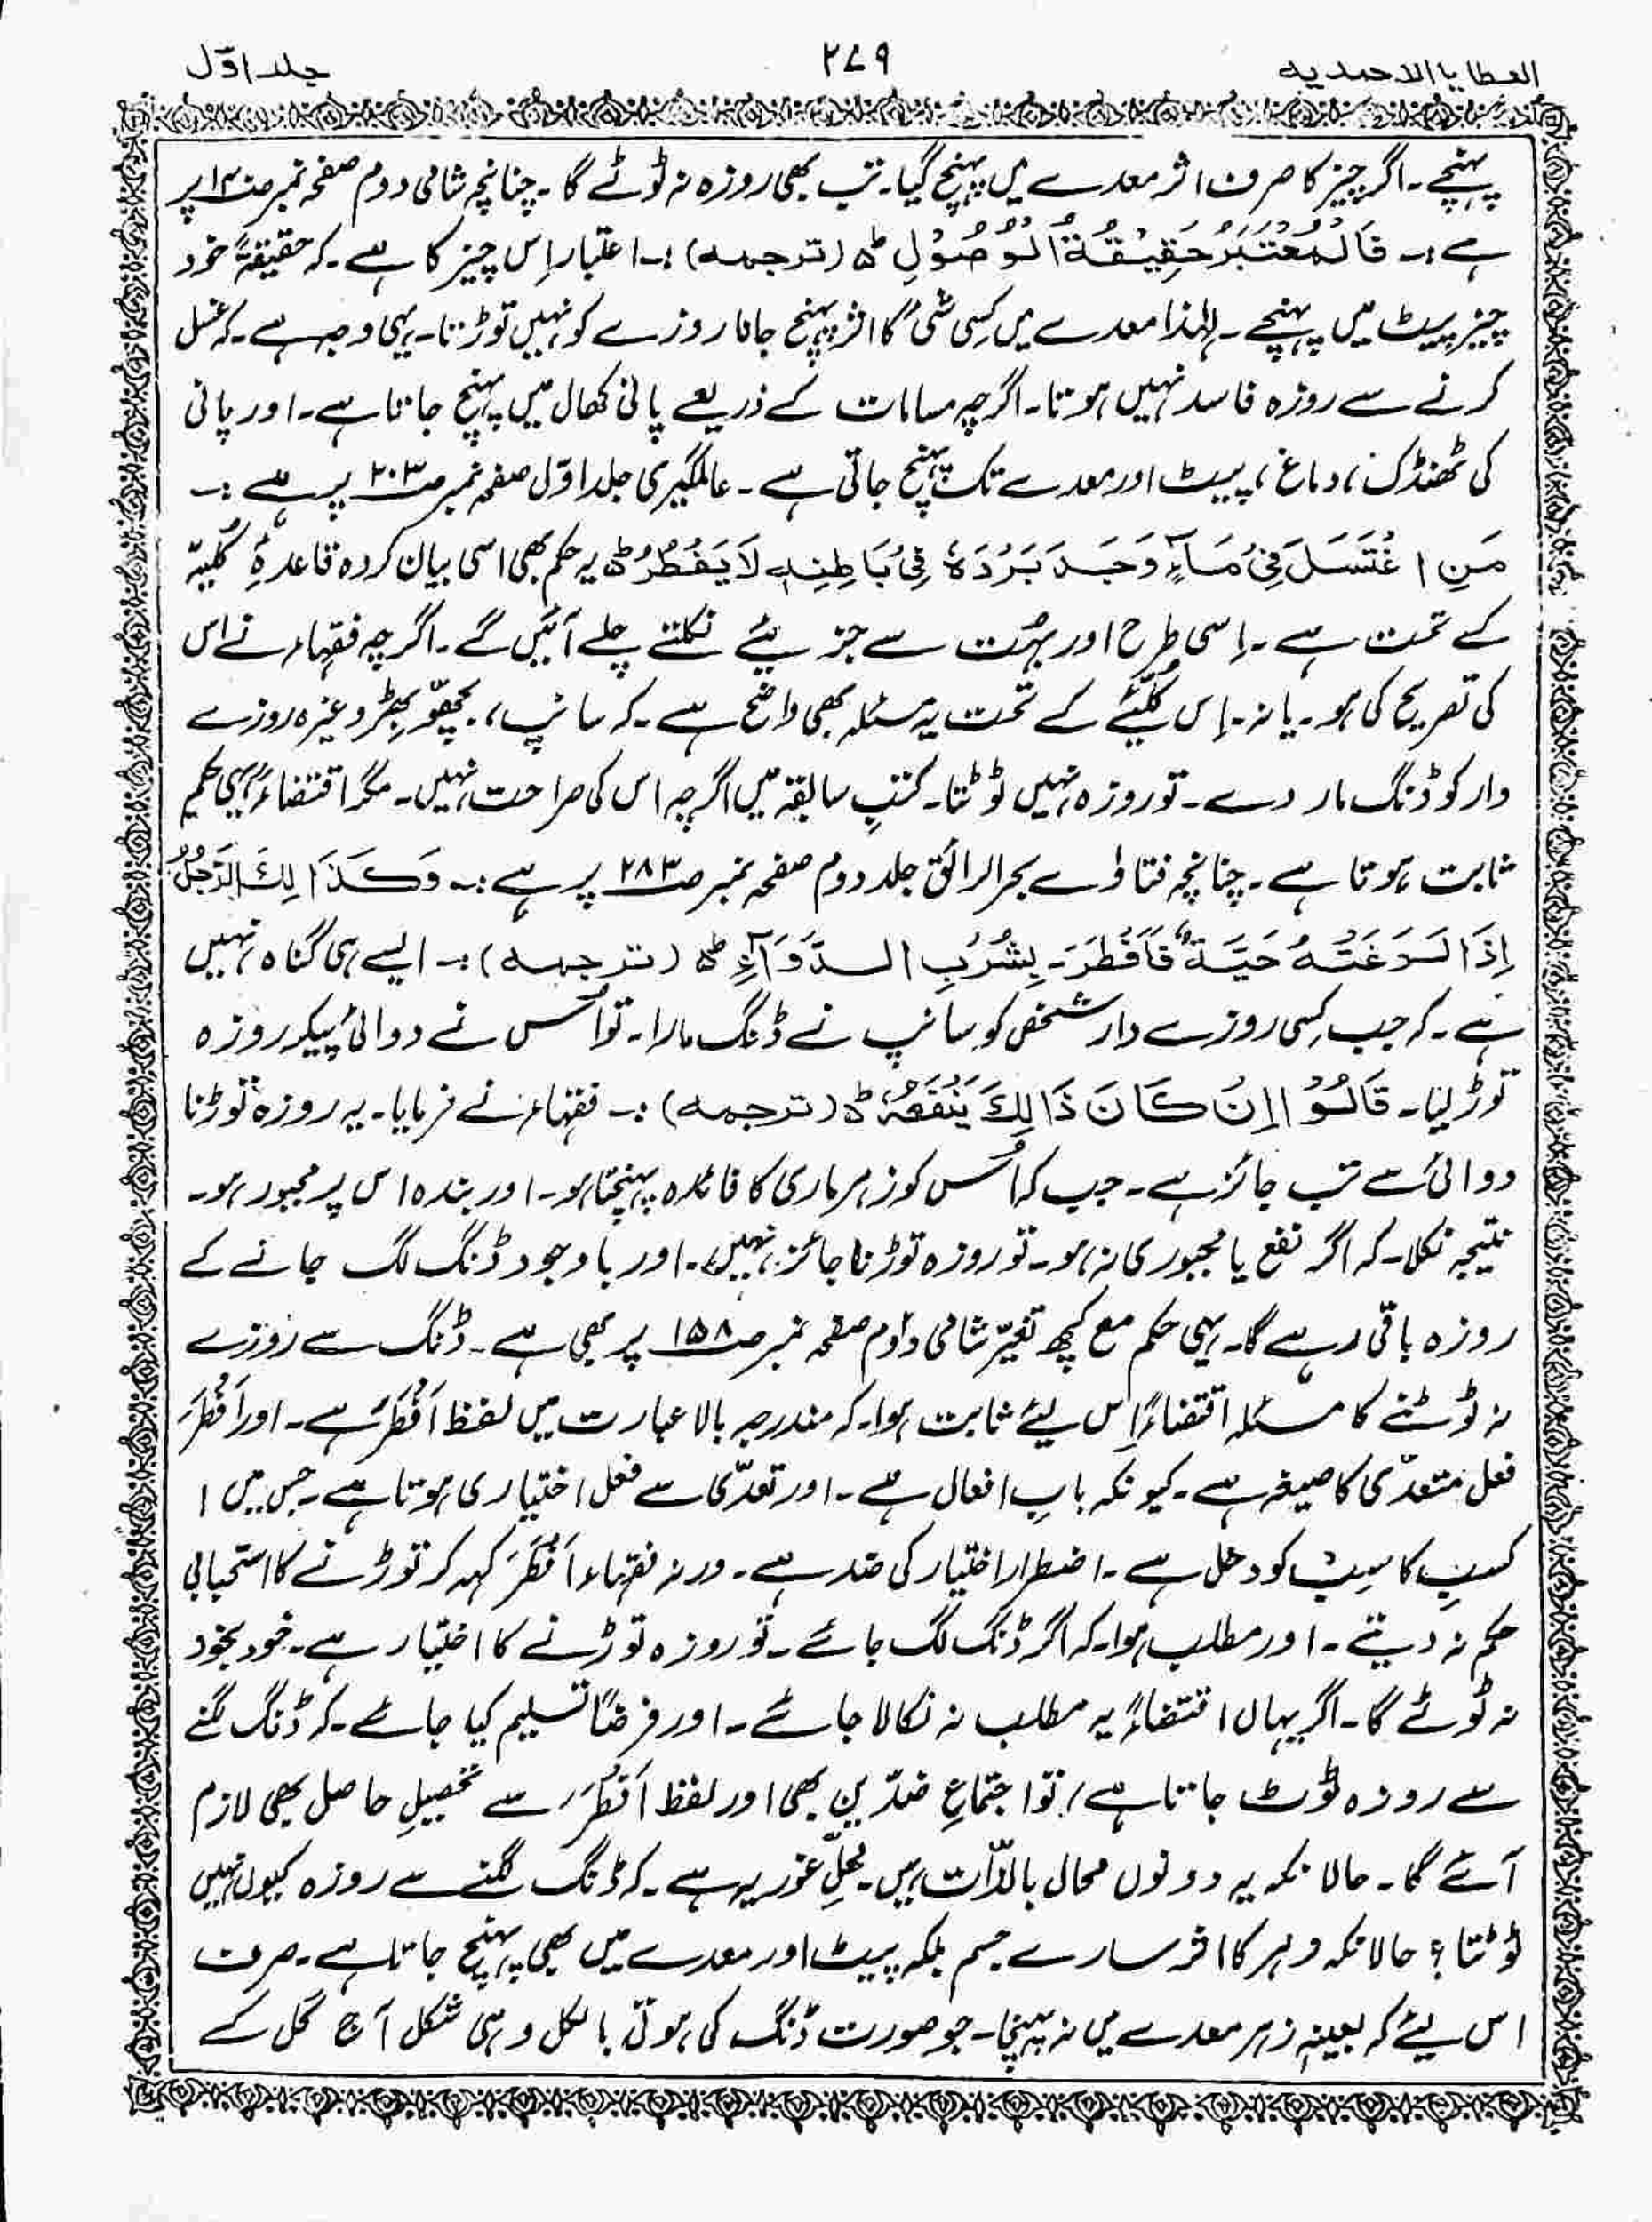 العطایا الاحمدیہ ۲۷۹ جلد اوّل
پہنچے۔ اگر چیز کا صرف اثر معدے میں پہنچ گیا۔ تب بھی روزہ نہ ٹوٹے گا۔ چنانچہ شامی دوم صفحہ نمبر پر
ہے :۔ فَالْمُعْتَبَرُ حَقِیْقَةُ الْوُصُوْلِ ط (ترجمہ) :۔ اعتبار اِس چیز کا ہے۔ کہ حقیقۃً خود
چیز پیٹ میں پہنچے۔ لہٰذا معدے میں کِسی شئ کا اثر پہنچ جانا روزے کو نہیں توڑتا۔ یہی وجہ ہے۔ کہ غسل
کرنے سے روزہ فاسد نہیں ہوتا۔ اگرچہ مسامات کے ذریعے پانی کھال میں پہنچ جاتا ہے۔ اور پانی
کی ٹھنڈک، دماغ، پیٹ اور معدے تک پہنچ جاتی ہے۔ عالمگیری جلد اوّل صفحہ نمبر صـ۲۰۳ پر ہے :۔
مَنِ اغْتَسَلَ فِیْ مَآءٍ وَجَدَ بَرْدَهٗ فِیْ بَاطِنِهٖ لَا یَفْطُرُ ط یہ حکم بھی اسی بیان کردہ قاعدہِ کُلیہّ
کے تحت ہے۔ اِسی طرح اور بہُت سے جزیئے نکلتے چلے آئیں گے۔ اگرچہ فقہاء نے اس
کی تصریح کی ہو۔ یا نہ۔ اِس کُلیّئے کے تحت یہ مسئلہ بھی واضح ہے۔ کہ سانپ، بچھّو، بھِڑ وغیرہ روزے
دار کو ڈنگ مار دے۔ تو روزہ نہیں ٹوٹتا۔ کتبِ سابقہ میں اگرچہ اس کی صراحت نہیں۔ مگر اقتضاءً یہی حکم
ثابت ہوتا ہے۔ چنانچہ فتاوٰے بحر الرائق جلد دوم صفحہ نمبر صـ۲۸۳ پر ہے :۔ وَکَذَا لِكَ الرَّجُلُ
اِذَا لَدَغَتْهُ حَیَّةٌ فَاَفْطَرَ۔ بِشُرْبِ الدَّوَآءِ ط (ترجمہ) :۔ ایسے ہی گناہ نہیں
ہے۔ کہ جب کِسی روزے دار شخص کو سانپ نے ڈنگ مارا۔ تو اُس نے دوائی پیکر روزہ
توڑ لیا۔ قَالُوْا اِنْ کَانَ ذَالِكَ یَنْفَعُهٗ ط (ترجمہ) :۔ فقہاء نے فرمایا۔ یہ روزہ توڑنا
دوائی سے تب جائز ہے۔ جب کہ اُس کو زہر ماری کا فائدہ پہنچتا ہو۔ اور بندہ اس پر مجبور ہو۔
نتیجہ نکلا۔ کہ اگر نفع یا مجبوری نہ ہو۔ تو روزہ توڑنا جائز نہیں۔ اور باوجود ڈنگ لگ جانے کے
روزہ باقی رہے گا۔ یہی حکم مع کچھ تغیّر شامی دوم صفحہ نمبر صـ۱۵۸ پر بھی ہے۔ ڈنگ سے روزے
نہ ٹوٹنے کا مسئلہ اقتضاءً اِس لیئے ثابت ہوا۔ کہ مندرجہ بالا عبارت میں لفظ اَفْطَرَ ہے۔ اور اَفْطَرَ
فعل متعدّی کا صیغہ ہے۔ کیونکہ بابِ افعال ہے۔ اور تعدّی سے فعل اختیاری ہوتا ہے۔ جس میں ا
کسبِ کاسِبْ کو دخل ہے۔ اضطرار اختیار کی ضد ہے۔ ورنہ فقہاء اَفْطَرَ کہہ کر توڑنے کا استحبابی
حکم نہ دیتے۔ اور مطلب ہوا۔ کہ اگر ڈنگ لگ جائے۔ تو روزہ توڑنے کا اختیار ہے۔ خود بخود
نہ ٹوٹے گا۔ اگر یہاں اقتضاءً یہ مطلب نہ نکالا جائے۔ اور فرضًا تسلیم کیا جائے۔ کہ ڈنگ لگنے
سے روزہ ٹوٹ جاتا ہے، تو اجتماعِ ضدّین بھی اور لفظ اَفْطَرَ، سے تحصیلِ حاصل بھی لازم
آئے گا۔ حالانکہ یہ دونوں محال بالذّات ہیں۔ محلِّ غور یہ ہے۔ کہ ڈنگ لگنے سے روزہ کیوں نہیں
ٹوٹتا؟ حالانکہ زہر کا اثر سارے جسم بلکہ پیٹ اور معدے میں بھی پہنچ جاتا ہے۔ صرف
اس لیئے کہ بعینہٖ زہر معدے میں نہ پہنچا۔ جو صورت ڈنگ کی ہوئی بالکل وہی شکل آج کل کے